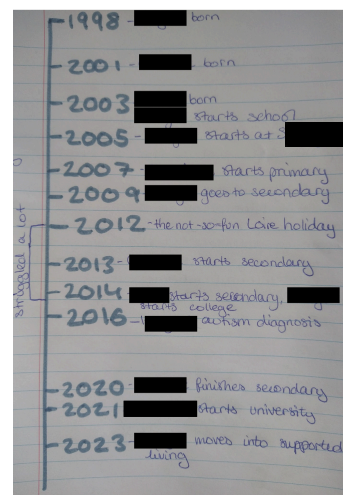 1998 - born
2001 - born
2003 born
starts school
2005 - starts at S
2007 - starts primary
2009 - goes to secondary
2012 - the not-so-fun Loire holiday
2013 - starts secondary
2014 - starts secondary,
starts college
2016 - autism diagnosis
struggled a lot
2020 - finishes secondary
2021 starts university
2023 - moves into supported
living